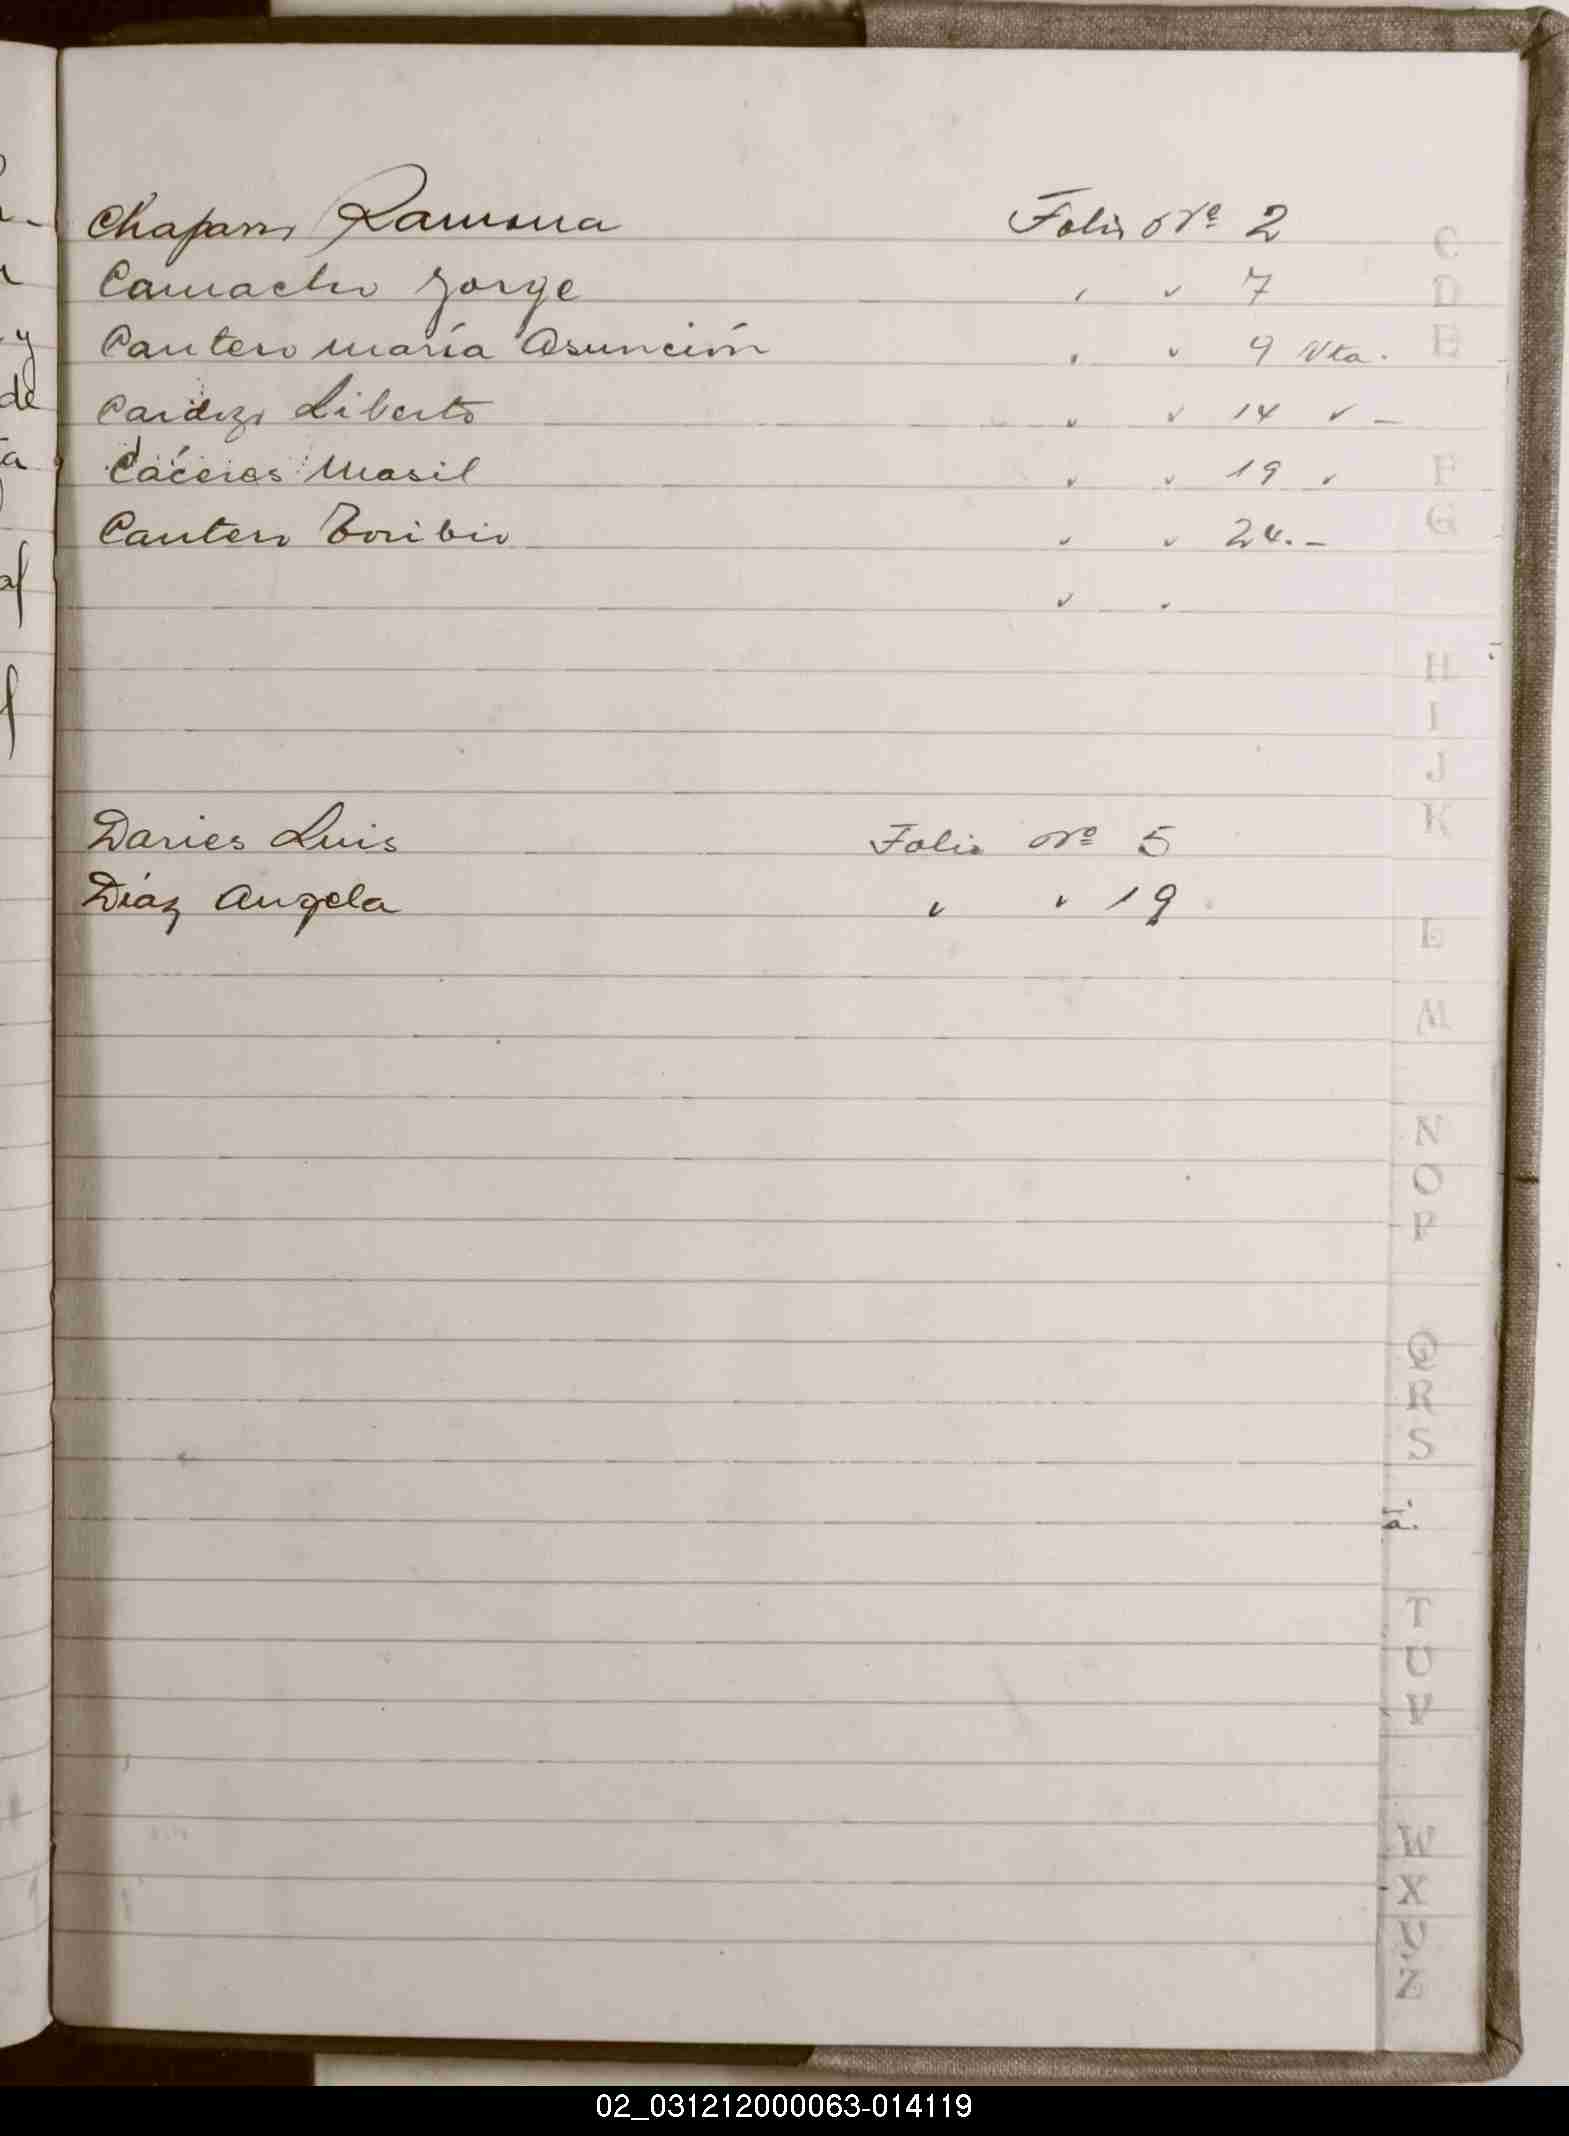 Chaparro Ramona Folio Nº 2
Camacho Jorge " " 7
Cantero María Asunción " " 9 Vta.
Cardozo Liberto " " 14 " -
Cáceres Masil " " 19 "
Cantero Toribio " " 24.-
" "
Daries Luis Folio Nº 5
Díaz Angela " " 19
C
D
E
F
G
H
I
J
K
L
M
N
O
P
Q
R
S
T
U
V
W
X
Y
Z
02_031212000063-014119